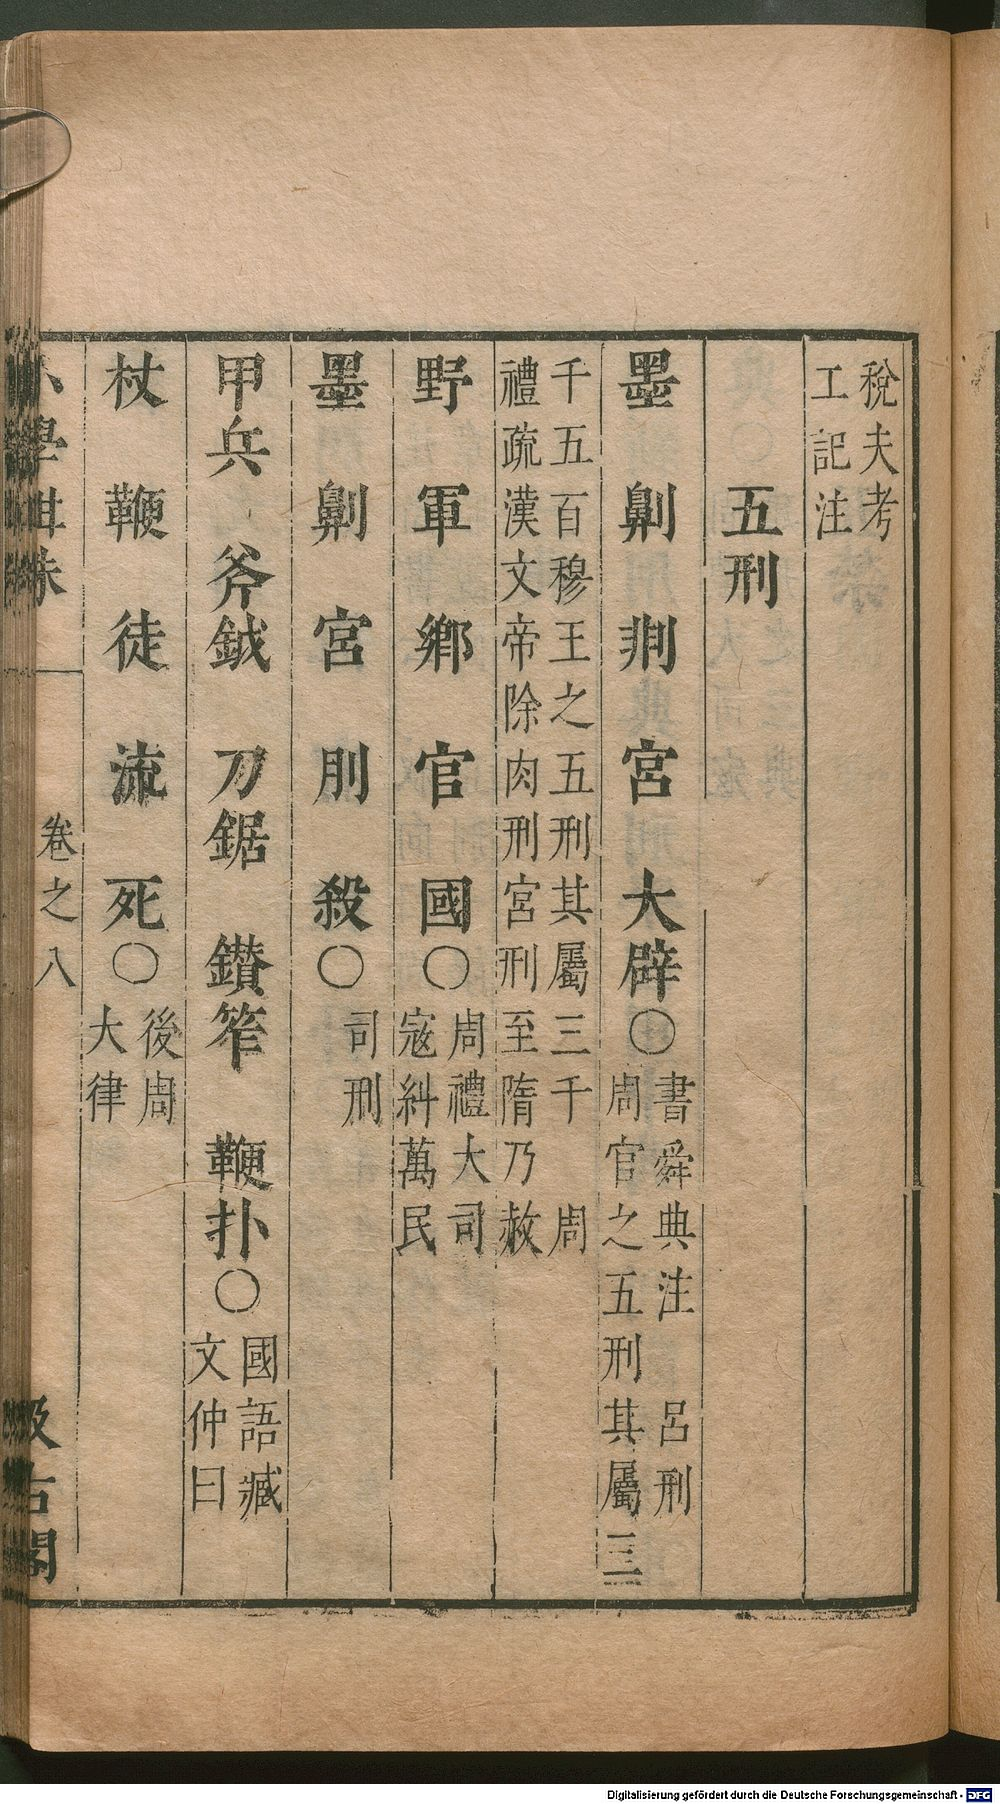 稅夫考
工記注
五刑
墨 劓 剕 宮 大辟〇
書舜典注 呂刑
周官之五刑其屬三
千五百穆王之五刑其屬三千 周
禮疏漢文帝除肉刑宮刑至隋乃赦
野 軍 鄉 官 國〇
周禮大司
寇糾萬民
墨 劓 宮 刖 殺〇
司刑
甲兵 斧鉞 刀鋸 鑚笮 鞭扑〇
國語臧
文仲曰
杖 鞭 徒 流 死〇
後周
大律
小學紺珠 卷之八 汲古閣
Digitalisierung gefördert durch die Deutsche Forschungsgemeinschaft - DFG